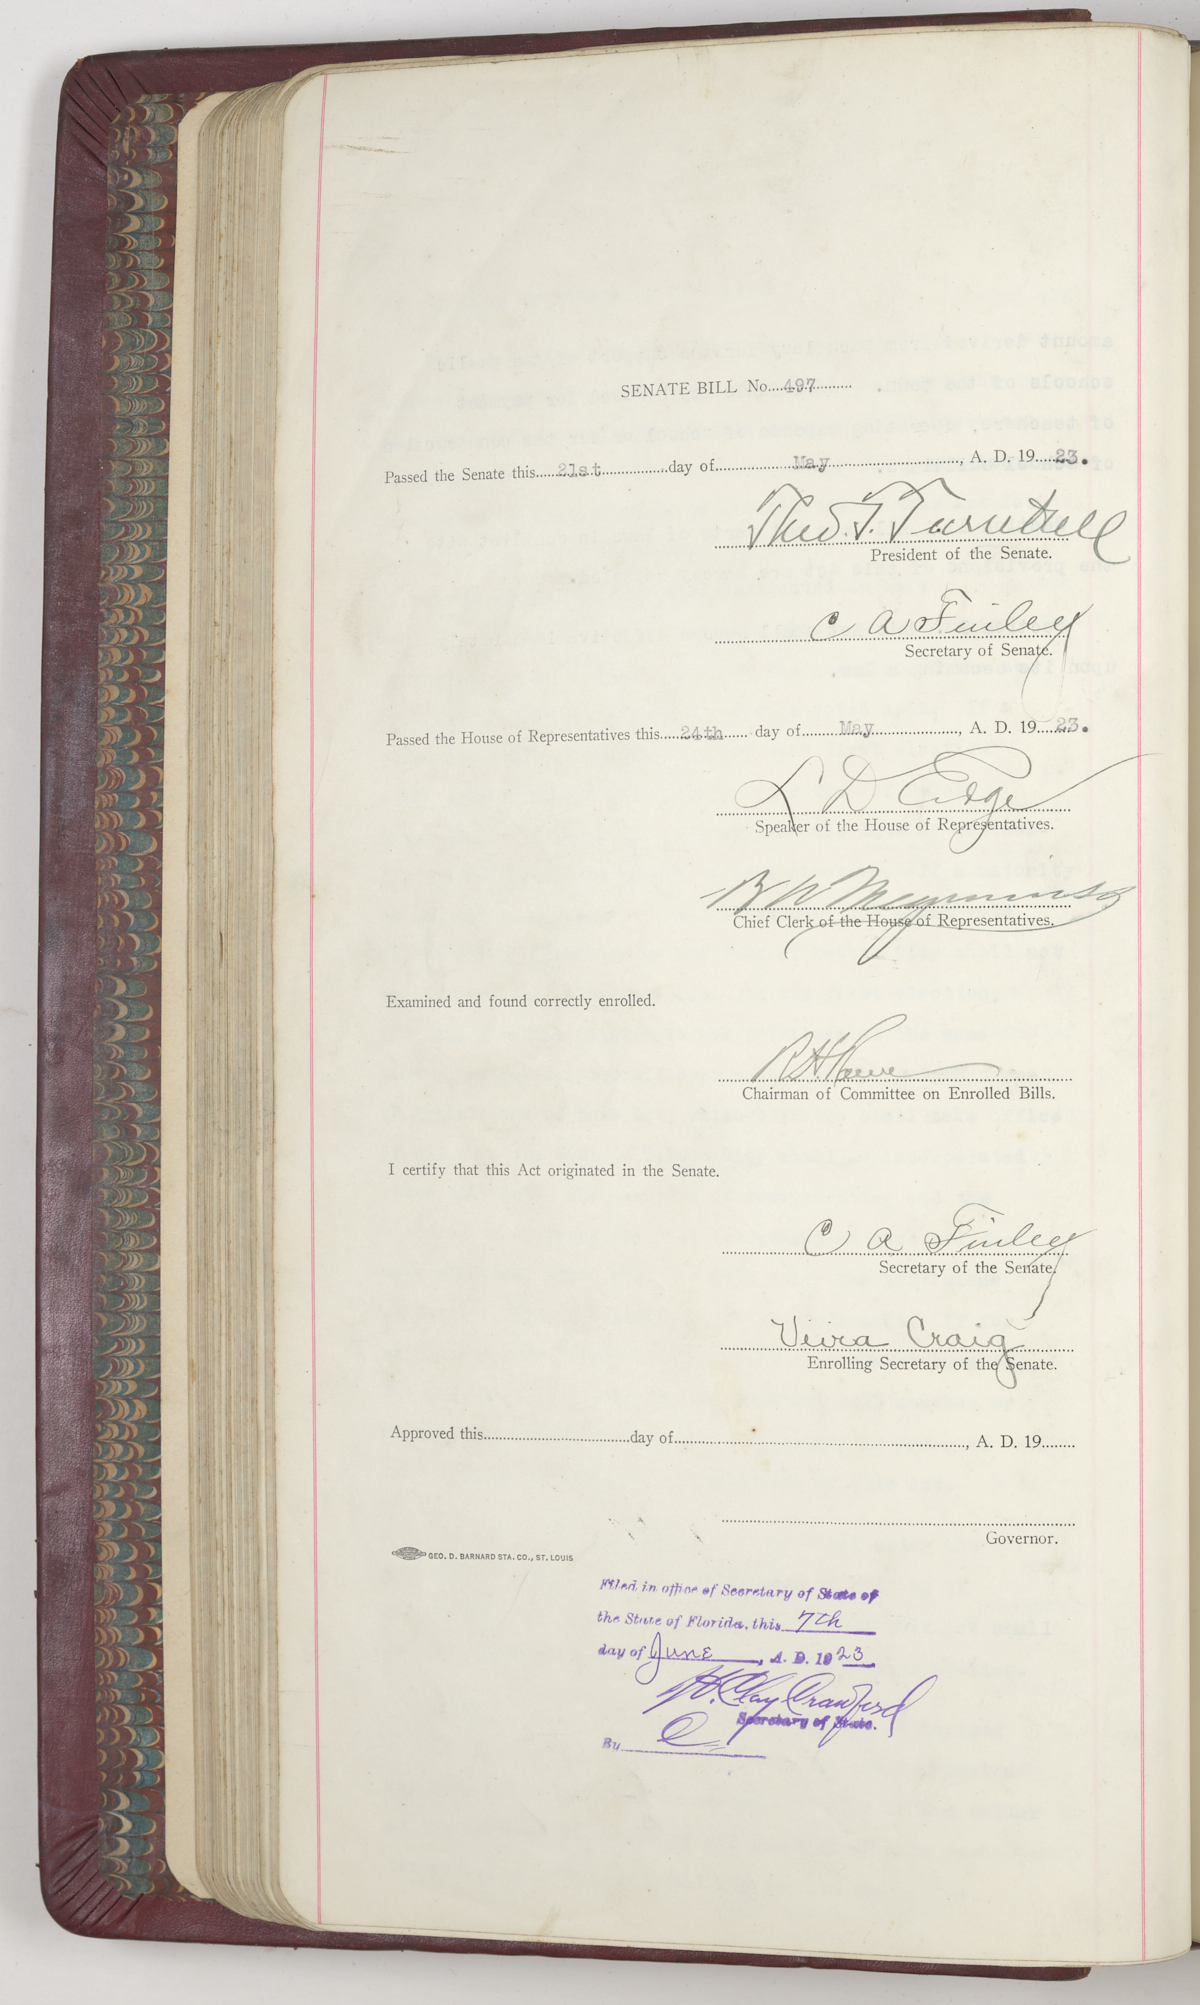 SENATE BILL No....497..........
Passed the Senate this.....21st.................day of....................May................................., A. D. 19....23.
Theo. T. Turnbull
President of the Senate.
C A Finley
Secretary of Senate.
Passed the House of Representatives this.....24th...... day of.........May...................., A. D. 19....23.
L D Edge
Speaker of the House of Representatives.
Chief Clerk of the House of Representatives.
Examined and found correctly enrolled.
R H Rowe
Chairman of Committee on Enrolled Bills.
I certify that this Act originated in the Senate.
C A Finley
Secretary of the Senate.
Craig
Enrolling Secretary of the Senate.
Approved this....................................day of......................................................................, A. D. 19........
Governor.
GEO. D. BARNARD STA. CO., ST. LOUIS
Filed in office of Secretary of State of
the State of Florida, this 7th
day of June, A. D. 1923
H. Clay Crawford
Secretary of State.
By